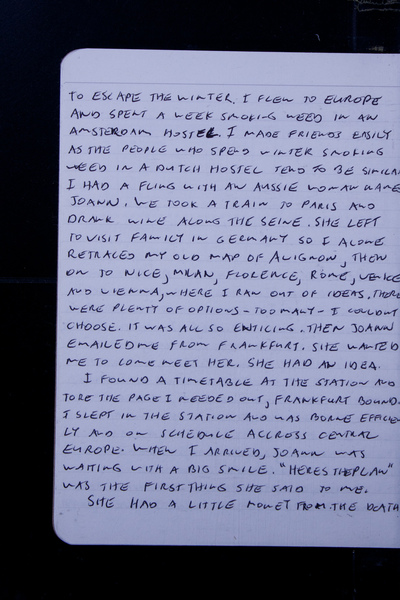 TO ESCAPE THE WINTER. I FLEW TO EUROPE
AND SPENT A WEEK SMOKING WEED IN AN
AMSTERDAM HOSTEL. I MADE FRIENDS EASILY
AS THE PEOPLE WHO SPEND WINTER SMOKING
WEED IN A DUTCH HOSTEL TEND TO BE SIMILAR
I HAD A FLING WITH AN AUSSIE WOMAN NAME
JOANN. WE TOOK A TRAIN TO PARIS AND
DRANK WINE ALONG THE SEINE. SHE LEFT
TO VISIT FAMILY IN GERMANY SO I ALONE
RETRACED MY OLD MAP OF AVIGNON, THEN
ON TO NICE, MILAN, FLORENCE, ROME, VENICE
AND VIENNA, WHERE I RAN OUT OF IDEAS. THERE
WERE PLENTY OF OPTIONS - TOO MANY - I COULDNT
CHOOSE. IT WAS ALL SO ENTICING. THEN JOANN
EMAILED ME FROM FRANKFURT. SHE WANTED
ME TO COME MEET HER. SHE HAD AN IDEA.
I FOUND A TIMETABLE AT THE STATION AND
TORE THE PAGE I NEEDED OUT, FRANKFURT BOUND.
I SLEPT IN THE STATION AND WAS BORNE EFFICIEN
LY AND ON SCHEDULE ACCROSS CENTRAL
EUROPE. WHEN I ARRIVED, JOANN WAS
WAITING WITH A BIG SMILE. "HERES THE PLAN"
WAS THE FIRST THING SHE SAID TO ME.
SHE HAD A LITTLE MONEY FROM THE DEATH